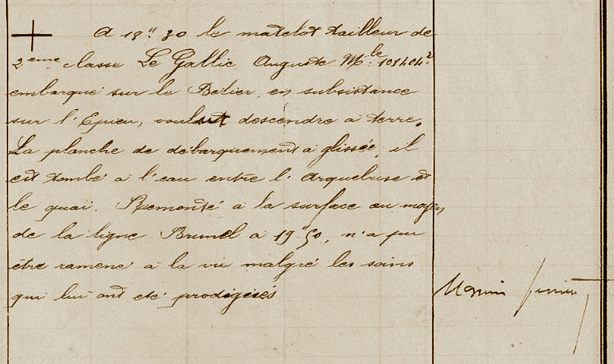 A 18h 30 le matelot tailleur de
2eme classe Le Gallic Auguste Mle 101404²
embarqué sur le Bélier, en subsistance
sur l'Epieu, voulut descendre à terre.
La planche de débarquement a glissée, il
est tombé à l'eau entre l'Arquebuse et
le quai. Remonté à la surface au moyen
de la ligne Brunel à 19h50, n'a pu
être ramené à la vie malgré les soins
qui lui ont été prodigués